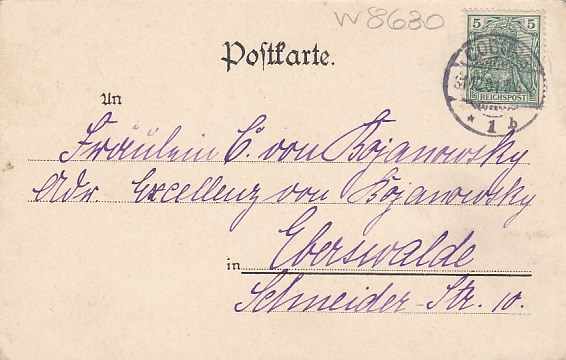 W 8630
Postkarte.
5 5
REICHSPOST
* 1 b
An
Fräulein C. von Bojanowsky
Adr. Excellenz von Bojanowsky
in Eberswalde
Schneider-Str. 10.